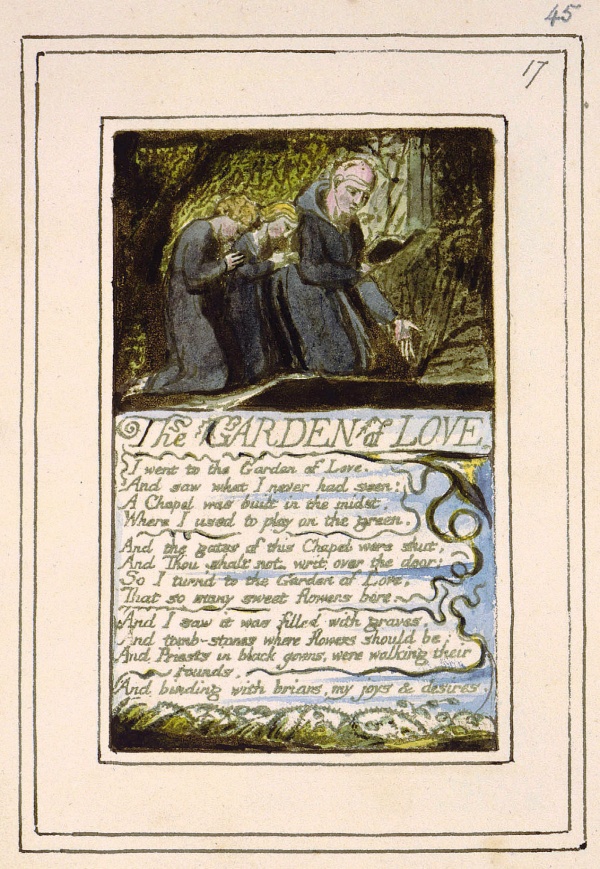 45
17
The GARDEN of LOVE
I went to the Garden of Love.
And saw what I never had seen:
A Chapel was built in the midst,
Where I used to play on the green.
And the gates of this Chapel were shut,
And Thou shalt not. writ over the door;
So I turn'd to the Garden of Love,
That so many sweet flowers bore.
And I saw it was filled with graves,
And tomb-stones where flowers should be:
And Priests in black gowns, were walking their
rounds,
And binding with briars, my joys & desires.